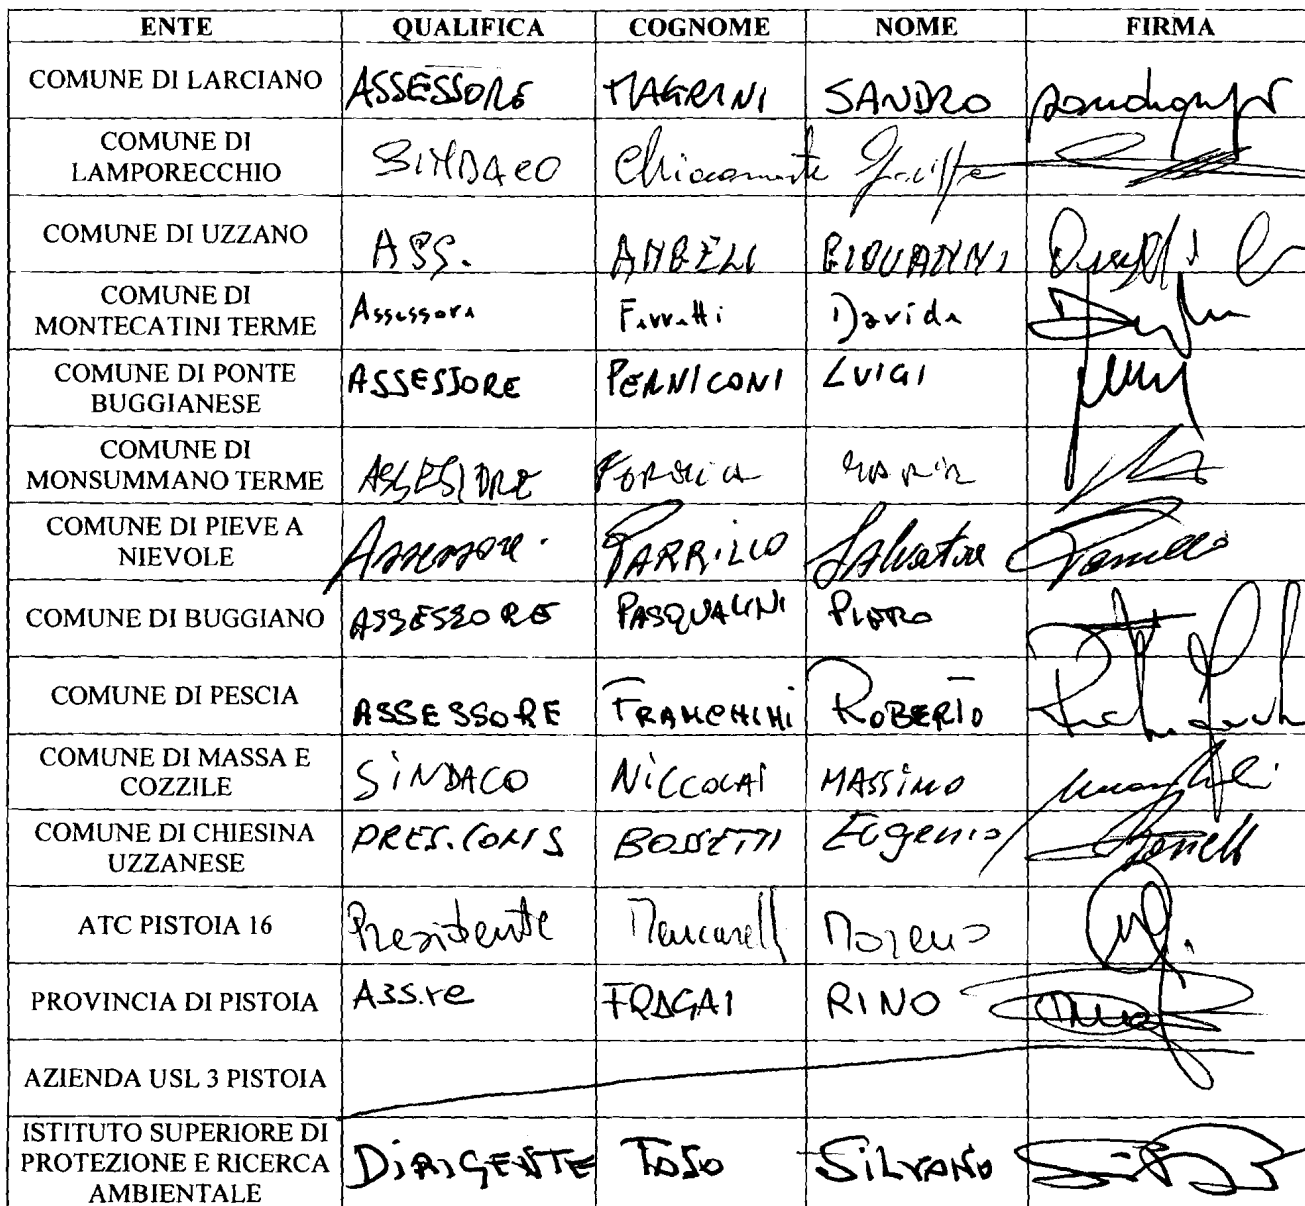 ENTE QUALIFICA COGNOME NOME FIRMA
COMUNE DI LARCIANO ASSESSORE MAGRINI SANDRO
COMUNE DI
LAMPORECCHIO SINDACO Chiaramonte
COMUNE DI UZZANO ASS. ANGELI GIOVANNI
COMUNE DI
MONTECATINI TERME Assessore Ferretti Davide
COMUNE DI PONTE
BUGGIANESE ASSESSORE PERNICONI LUIGI
COMUNE DI
MONSUMMANO TERME ASSESSORE
COMUNE DI PIEVE A
NIEVOLE Assessore PARRILLO Salvatore
COMUNE DI BUGGIANO ASSESSORE PASQUALINI PIETRO
COMUNE DI PESCIA ASSESSORE FRANCHINI ROBERTO
COMUNE DI MASSA E
COZZILE SINDACO NICCOLAI MASSIMO
COMUNE DI CHIESINA
UZZANESE PRES. CONS BOSSETTI Eugenio
ATC PISTOIA 16 Presidente Moreno
PROVINCIA DI PISTOIA ASS.re FRAGAI RINO
AZIENDA USL 3 PISTOIA
ISTITUTO SUPERIORE DI
PROTEZIONE E RICERCA
AMBIENTALE DIRIGENTE TOSO SILVANO